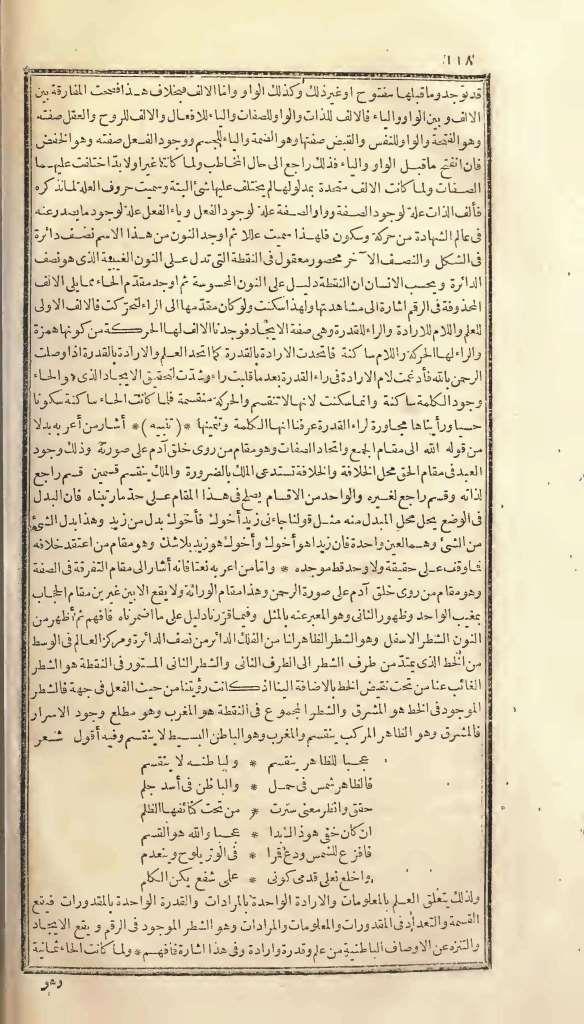 ١١٨
قد توجد وما قبلها مفتوح أو غير ذلك وكذلك الواو وأما الالف فبخلاف هذا فصحت المفارقة بين
الالف وبين الواو والياء فالالف للذات والواو للصفات والياء للافعال والالف للروح والعقل صفته
وهو الفتحة والواو للنفس والقبض صفتها وهو الضمة والياء للجسم ووجود الفعل صفته وهو الخفض
فان انفتح ما قبل الواو والياء فذلك راجع الى حال المخاطب ولما كانتا غيرا ولا بد اختلفت عليهما
الصفات ولما كانت الالف متحدة بمدلولها لم يختلف عليها شئ البتة وسميت حروف العلة لما نذكره
فألف الذات علة لوجود الصفة وواو الصفة علة لوجود الفعل وياء الفعل علة لوجود ما يصدر عنه
فى عالم الشهادة من حركة وسكون فلهذا سميت عللا ثم أوجد النون من هذا الاسم نصف دائرة
فى الشكل والنصف الآخر محصور معقول فى النقطة التى تدل على النون الغيبية الذى هو نصف
الدائرة ويحسب الانسان ان النقطة دليل على النون المحسوسة ثم أوجد مقدم الحاء مما يلى الالف
المحذوفة فى الرقم اشارة الى مشاهدتها ولهذا سكنت ولو كان مقدمها الى الراء لتحركت فالالف الاولى
للعلم واللام للارادة والراء للقدرة وهى صفة الايجاد فوجدنا الالف لها الحركة من كونها همزة
والراء لها الحركة واللام ساكنة فاتحدت الارادة بالقدرة كما اتحد العلم والارادة بالقدرة اذا وصلت
الرحمن بالله فأدغمت لام الارادة فى راء القدرة بعد ما قلبت راء وشددت لتحقيق الايجاد الذى هو الحاء
وجود الكلمة ساكنة وانما سكنت لانها لا تنقسم والحركة منقسمة فلما كانت الحاء ساكنة سكونا
حسيا ورأيناها مجاورة لراء القدرة عرفنا انها الكلمة وتثمينها * (تنبيه) * أشار من أعربه بدلا
من قوله الله الى مقام الجمع واتحاد الصفات وهو مقام من روى خلق آدم على صورته وذلك وجود
العبد فى مقام الحق محل الخلافة والخلافة تستدعى الملك بالضرورة والملك ينقسم قسمين قسم راجع
لذاته وقسم راجع لغيره والواحد من الاقسام يصلح فى هذا المقام على حد ما رتبناه فان البدل
فى الوضع يحل محل المبدل منه مثل قولنا جاءنى زيد أخوك فأخوك بدل من زيد وهذا بدل الشئ
من الشئ وهما لعين واحدة فان زيدا هو أخوك وأخوك هو زيد بلا شك وهو مقام من اعتقد خلافه
فما وقف على حقيقة ولا وحد قط موجده * وأما من أعربه نعتا فانه أشار الى مقام التفرقة فى الصفة
وهو مقام من روى خلق آدم على صورة الرحمن وهذا مقام الوراثة ولا يقع الا بين غيرين مقام الحجاب
بمغيب الواحد وظهور الثانى وهو المعبر عنه بالمثل وفيما قررنا دليل على ما أضمرناه فافهم ثم أظهر من
النون الشطر الاسفل وهو الشطر الظاهر لنا من الفلك الدائر من نصف الدائرة ومركز العالم فى الوسط
من الخط الذى يمتد من طرف الشطر الى الطرف الثانى والشطر الثانى المستور فى النقطة هو الشطر
الغائب عنا من تحت نقيض الخط بالاضافة الينا اذ كانت رؤيتنا من حيث الفعل فى جهة فالشطر
الموجود فى الخط هو المشرق والشطر المجموع فى النقطة هو المغرب وهو مطلع وجود الاسرار
فالمشرق وهو الظاهر المركب ينقسم والمغرب وهو الباطن البسيط لا ينقسم وفيه أقول شعر
عجبا للظاهر ينقسم * ولباطنه لا ينقسم
فالظاهر شمس فى حمل * والباطن فى أسد حلم
حقق وانظر معنى سترت * من تحت كنائفها الظلم
ان كان خفى هو ذاك بدا * عجبا والله هو القسم
فافزع للشمس ودع قمرا * فى الوتر يلوح وينعدم
واخلع نعلى قدمى كونى * على شفع يكن الكلم
ولذلك يتعلق العلم بالمعلومات والارادة الواحدة بالمرادات والقدرة الواحدة بالمقدورات فيقع
القسمة والتعداد فى المقدورات والمعلومات والمرادات وهو الشطر الموجود فى الرقم ويقع الاتحاد
والتنزه عن الاوصاف الباطنية من علم وقدرة وارادة وفى هذا اشارة فافهم * ولما كانت الحاء ثمانية
وهو